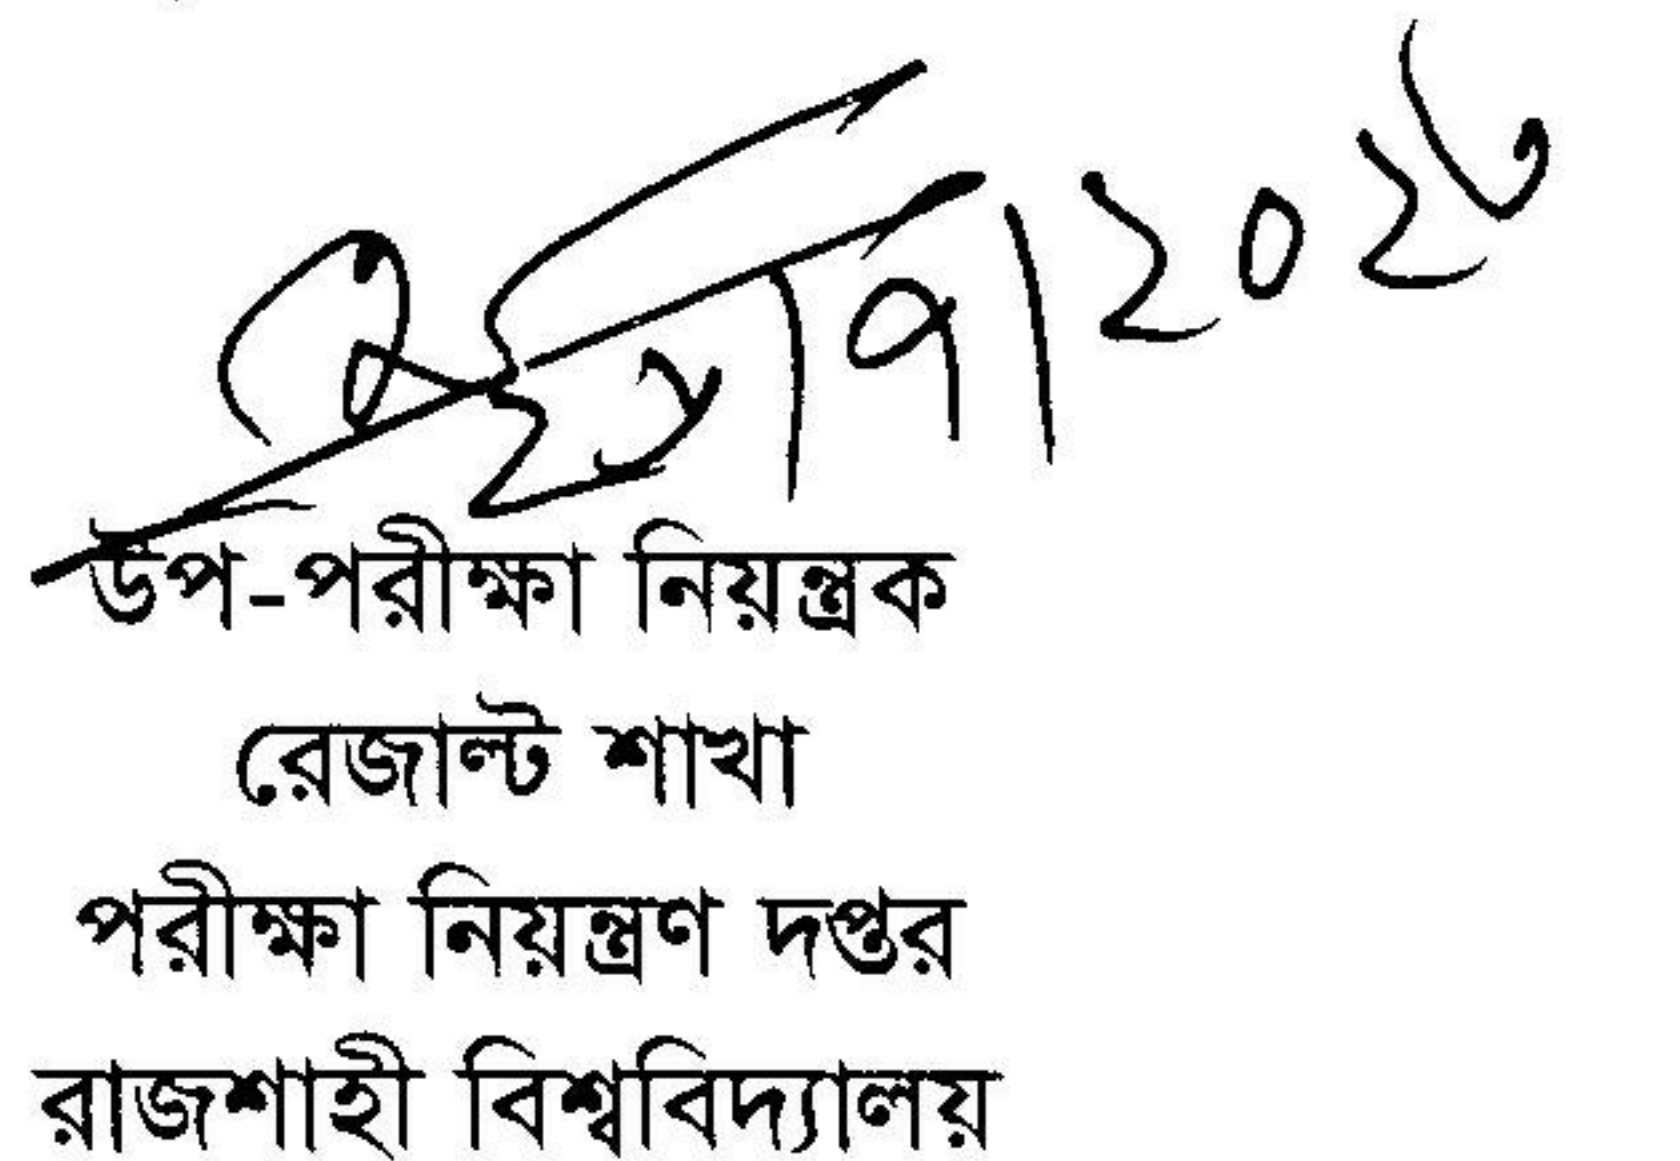 ২৩|৭|২০২৩
উপ-পরীক্ষা নিয়ন্ত্রক
রেজাল্ট শাখা
পরীক্ষা নিয়ন্ত্রণ দপ্তর
রাজশাহী বিশ্ববিদ্যালয়